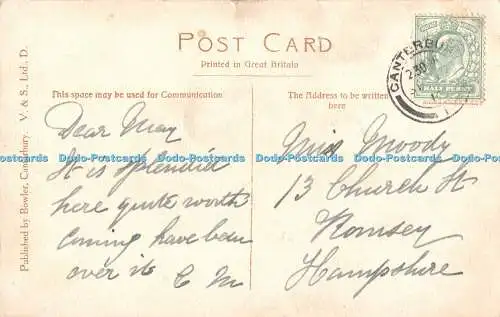 POST CARD
Printed in Great Britain
This space may be used for Communication
The Address to be written
here
CANTERBURY
230
HALF PENNY
Dear May
It is splendid
here quite worth
coming have been
over it E M
Miss Moody
13 Church St
Romsey
Hampshire
Published by Bowler, Canterbury. V. & S., Ltd., D.
Dodo-Postcards Dodo-Postcards Dodo-Postcards Dodo-Postcards Dodo-Postcards Dodo-Postcards